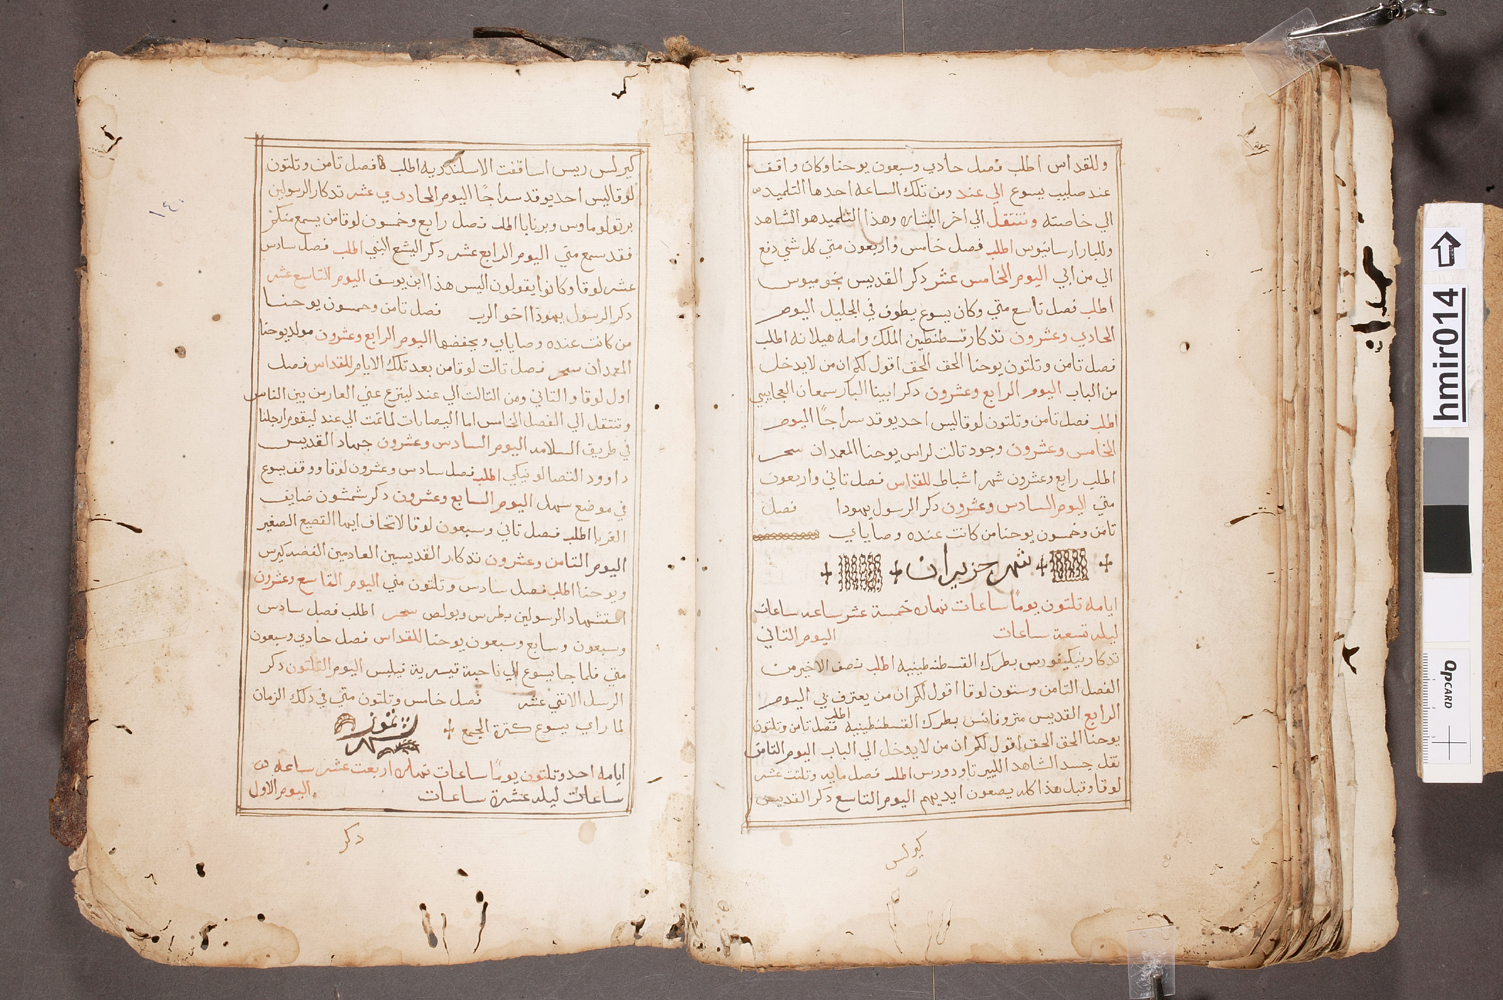 وللقداس اطلب فصل حادي وسبعون يوحنا وكان واقف
عند صليب يسوع الي عند ومن تلك الساعه اخدها التلميد
الي خاصته وتنتقل الي اخر البشاره وهدا التلميد هو الشاهد
وللبار ارسانيوس اطلب فصل خامس واربعون متي كل شي دفع
الي من ابي اليوم الخامس عشر دكر القديس
اطلب فصل تاسع متي وكان يسوع يطوف في الجليل اليوم
الحادي وعشرون تدكار قسطنطين الملك وامه هيلانه اطلب
فصل تامن وتلتون يوحنا الحق الحق اقول لكم ان من لا يدخل
من الباب اليوم الرابع وعشرون دكر ابينا البار سمعان العجايبي
اطلب فصل تامن وتلتون لوقا ليس احد يوقد سراجًا اليوم
الخامس وعشرون وجود تالت لراس يوحنا المعمدان سحر
اطلب رابع وعشرون شهر اشباط للقداس فصل تاني واربعون
متي اليوم السادس وعشرون دكر الرسول يهودا فصل
تامن وخمسون يوحنا من كانت عنده وصاياي
شهر حزيران
ايامه تلتون يومًا ساعات نهاره خمسة عشر ساعه ساعات
ليله تسعة ساعات اليوم التاني
تدكار نيكيفورس بطرك القسطنطينيه اطلب نصف الاخير من
الفصل التامن وستون لوقا اقول لكم ان من يعترف بي اليوم
الرابع القديس متروفانس بطرك القسطنطينية اطلب فصل تامن وتلتون
يوحنا الحق الحق اقول لكم ان من لا يدخل الي الباب اليوم التامن
نقل جسد الشاهد الكبير تاودورس اطلب فصل مايه وتلتة عشر
لوقا وقبل هدا كله يضعون ايديهم اليوم التاسع دكر القديس
كيرلس
١٤٠
كيرلس ريس اساقفت الاسكندريه اطلب فصل تامن وتلتون
لوقا ليس احد يوقد سراجًا اليوم الحادي عشر تدكار الرسولين
برتولوماوس وبرنابا اطلب فصل رابع وخمسون لوقا من يسمع منكم
فقد سمع مني اليوم الرابع عشر دكر اليشع النبي اطلب فصل سادس
عشر لوقا وكانوا يقولون اليس هدا ابن يوسف اليوم التاسع عشر
دكر الرسول يهودا اخو الرب فصل تامن وخمسون يوحنا
من كانت عنده وصاياي ويحفضها اليوم الرابع وعشرون مولد يوحنا
المعمدان سحر فصل تالت لوقا من بعد تلك الايام للقداس فصل
اول لوقا والتاني ومن التالت الي عند لينزع عني العار من بين الناس
وتنتقل الي الفصل الخامس اما اليصابات لما تمت الي عند ليقوم ارجلنا
في طريق السلامه اليوم السادس وعشرون جهاد القديس
داوود التصالونيكي اطلب فصل سادس وعشرون لوقا ووقف يسوع
في موضع سهل اليوم السابع وعشرون دكر شمشون ضايف
الغربا اطلب فصل تاني وسبعون لوقا لا تخاف ايها القطيع الصغير
اليوم التامن وعشرون تدكار القديسين العادمين الفضه كيرس
ويوحنا اطلب فصل سادس وتلتون متي اليوم التاسع وعشرون
استشهاد الرسولين بطرس وبولص سحر اطلب فصل سادس
وسبعون وسابع وسبعون يوحنا للقداس فصل حادي وسبعون
متي فلما جا يسوع الي ناحية قيسرية فيلبس اليوم التلتون دكر
الرسل الاتني عشر فصل خامس وتلتون متي في دلك الزمان
لما راي يسوع كترة الجمع
شهر تموز
ايامه احد وتلتون يومًا ساعات نهاره اربعت عشر ساعه
ساعات ليله عشرة ساعات اليوم الاول
دكر
hmir014
QPCARD